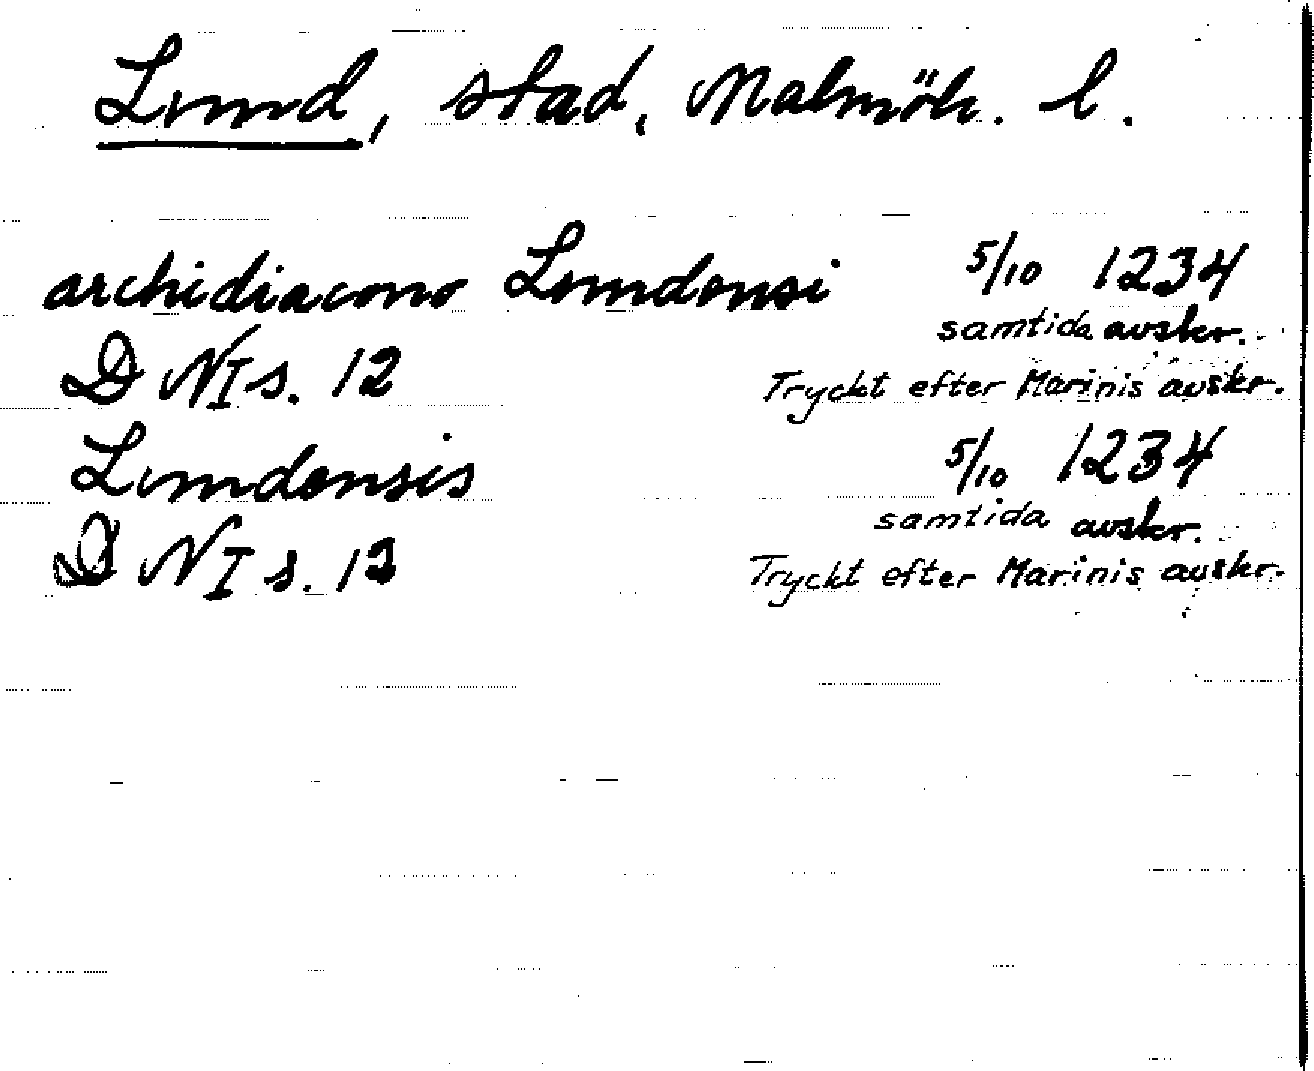 Lund, stad, Malmöh. l.
archidiacono Londonsi 5/10 1234
samtida avskr.
D N I s. 12 Tryckt efter Marinis avskr.
Lundensis 5/10 1234
samtida avskr.
D N I s. 12 Tryckt efter Marinis avskr.